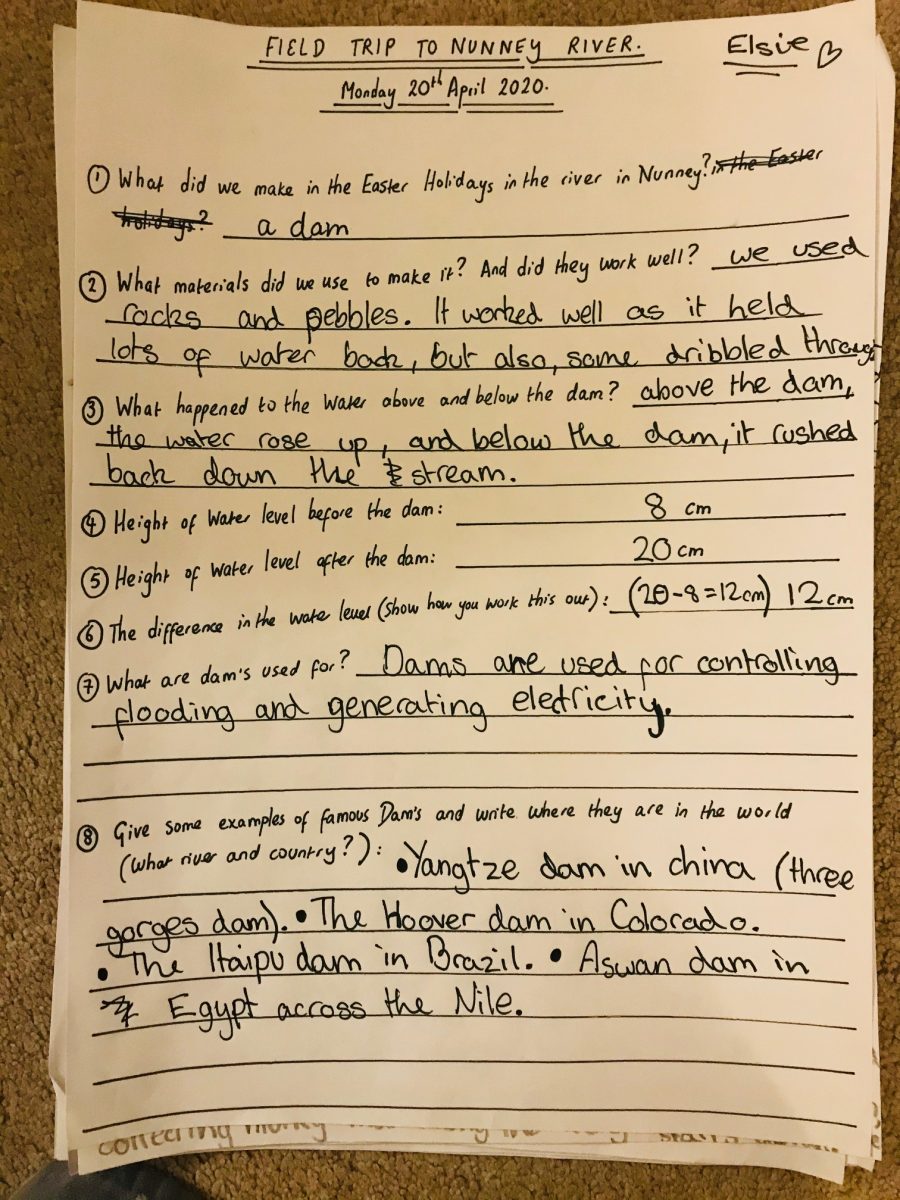 FIELD TRIP TO NUNNEY RIVER.
Elsie
Monday 20th April 2020.
① What did we make in the Easter Holidays in the river in Nunney? in the Easter
holidays? a dam
② What materials did we use to make it? And did they work well? we used
rocks and pebbles. It worked well as it held
lots of water back, but also, some dribbled through
③ What happened to the Water above and below the dam? above the dam,
the water rose up, and below the dam, it rushed
back down the stream.
④ Height of Water level before the dam: 8 cm
⑤ Height of Water level after the dam: 20 cm
⑥ The difference in the water level (show how you work this out): (20-8=12cm) 12cm
⑦ What are dam's used for? Dams are used for controlling
flooding and generating electricity.
⑧ Give some examples of famous Dam's and write where they are in the world
(what river and country?): •Yangtze dam in china (three
gorges dam). • The Hoover dam in Colorado.
• The Itaipu dam in Brazil. • Aswan dam in
Egypt across the Nile.